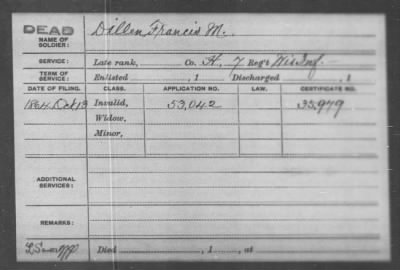 DEAD
NAME OF SOLDIER:
Dillen Francis M.
SERVICE:
Late rank, Co. H. 7 Reg't Wis Inf.
TERM OF SERVICE:
Enlisted , 1 Discharged , 1
DATE OF FILING. CLASS. APPLICATION NO. LAW. CERTIFICATE NO.
1864 Oct 13 Invalid, 53,042 33,979
Widow,
Minor,
ADDITIONAL SERVICES:
REMARKS:
Died , 1 , at